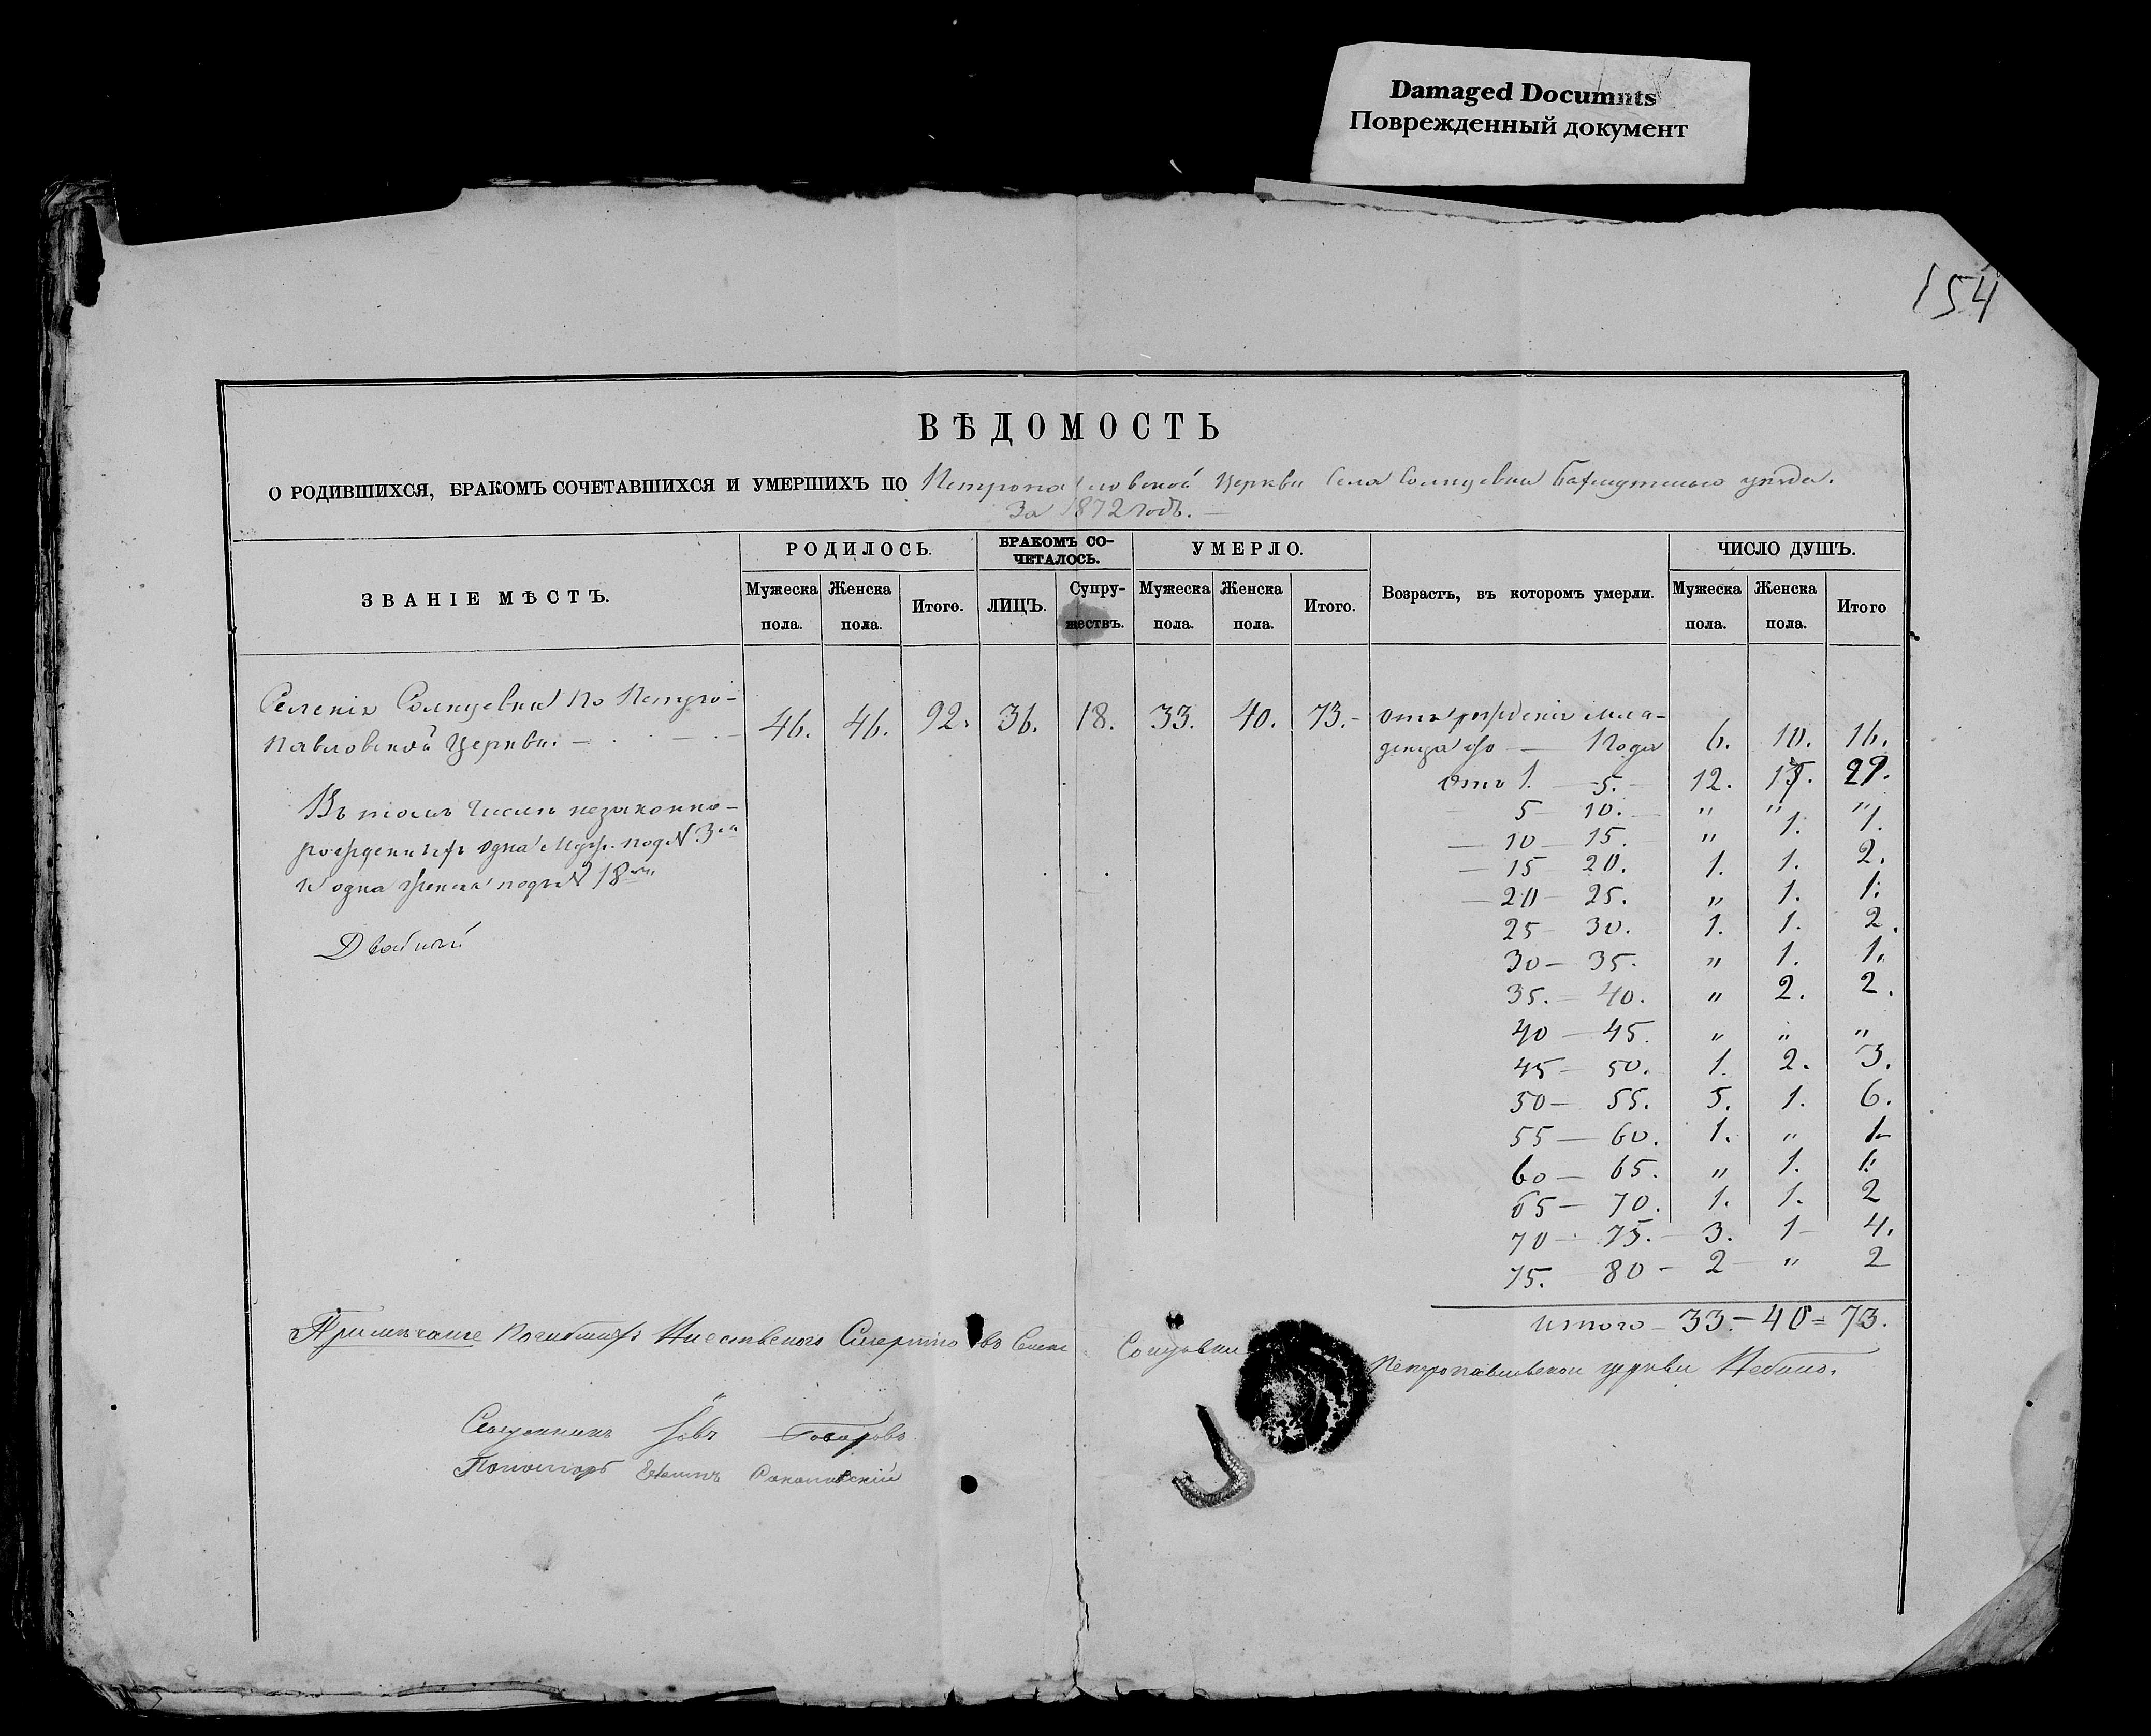 Damaged Documnts
Поврежденный документ
154
ВѢДОМОСТЬ
О РОДИВШИХСЯ, БРАКОМЪ СОЧЕТАВШИХСЯ И УМЕРШИХЪ ПО Петропавловской Церкви Села Солнцевки Бахмутскаго уѣзда.
За 1872 годъ. —
ЗВАНІЕ МѢСТЪ. РОДИЛОСЬ. БРАКОМЪ СО-ЧЕТАЛОСЬ. УМЕРЛО. Возрастъ, въ которомъ умерли. ЧИСЛО ДУШЪ.
Мужеска пола. Женска пола. Итого. ЛИЦЪ. Супру-жествъ. Мужеска пола. Женска пола. Итого. Мужеска пола. Женска пола. Итого
Селенія Солнцевки по Петро-
Павловской Церкви. — 46. 46. 92. 36. 18. 33. 40. 73. —
Въ томъ числѣ незаконно-
рожденныхъ одна муж. под № 3мъ
и одна женска подъ № 18мъ
Двойни
отъ рожденія мла-
денца до — 1 года 6. 10. 16.
отъ 1. — 5. — 12. 17. 29.
5 — 10. — " " "
— 10 — 15. " 1. 1.
— 15 20. 1. 1. 2.
— 20 — 25. " 1. 1.
25 — 30. 1. 1. 2.
30 — 35. " 1. 1.
35. — 40. " 2. 2.
40 — 45. " " "
45 — 50. 1. 2. 3.
50 — 55. 5. 1. 6.
55 — 60. 1. " 1
60 — 65. " 1. 1.
65 — 70. 1. 1. 2
70 — 75. — 3. 1 — 4.
75. 80 — 2 — " 2
итого — 33. — 40 = 73.
Примѣчаніе Погибшихъ смертію въ Петропавловской церкви Небыло.
Священникъ Іовъ
Пономарь